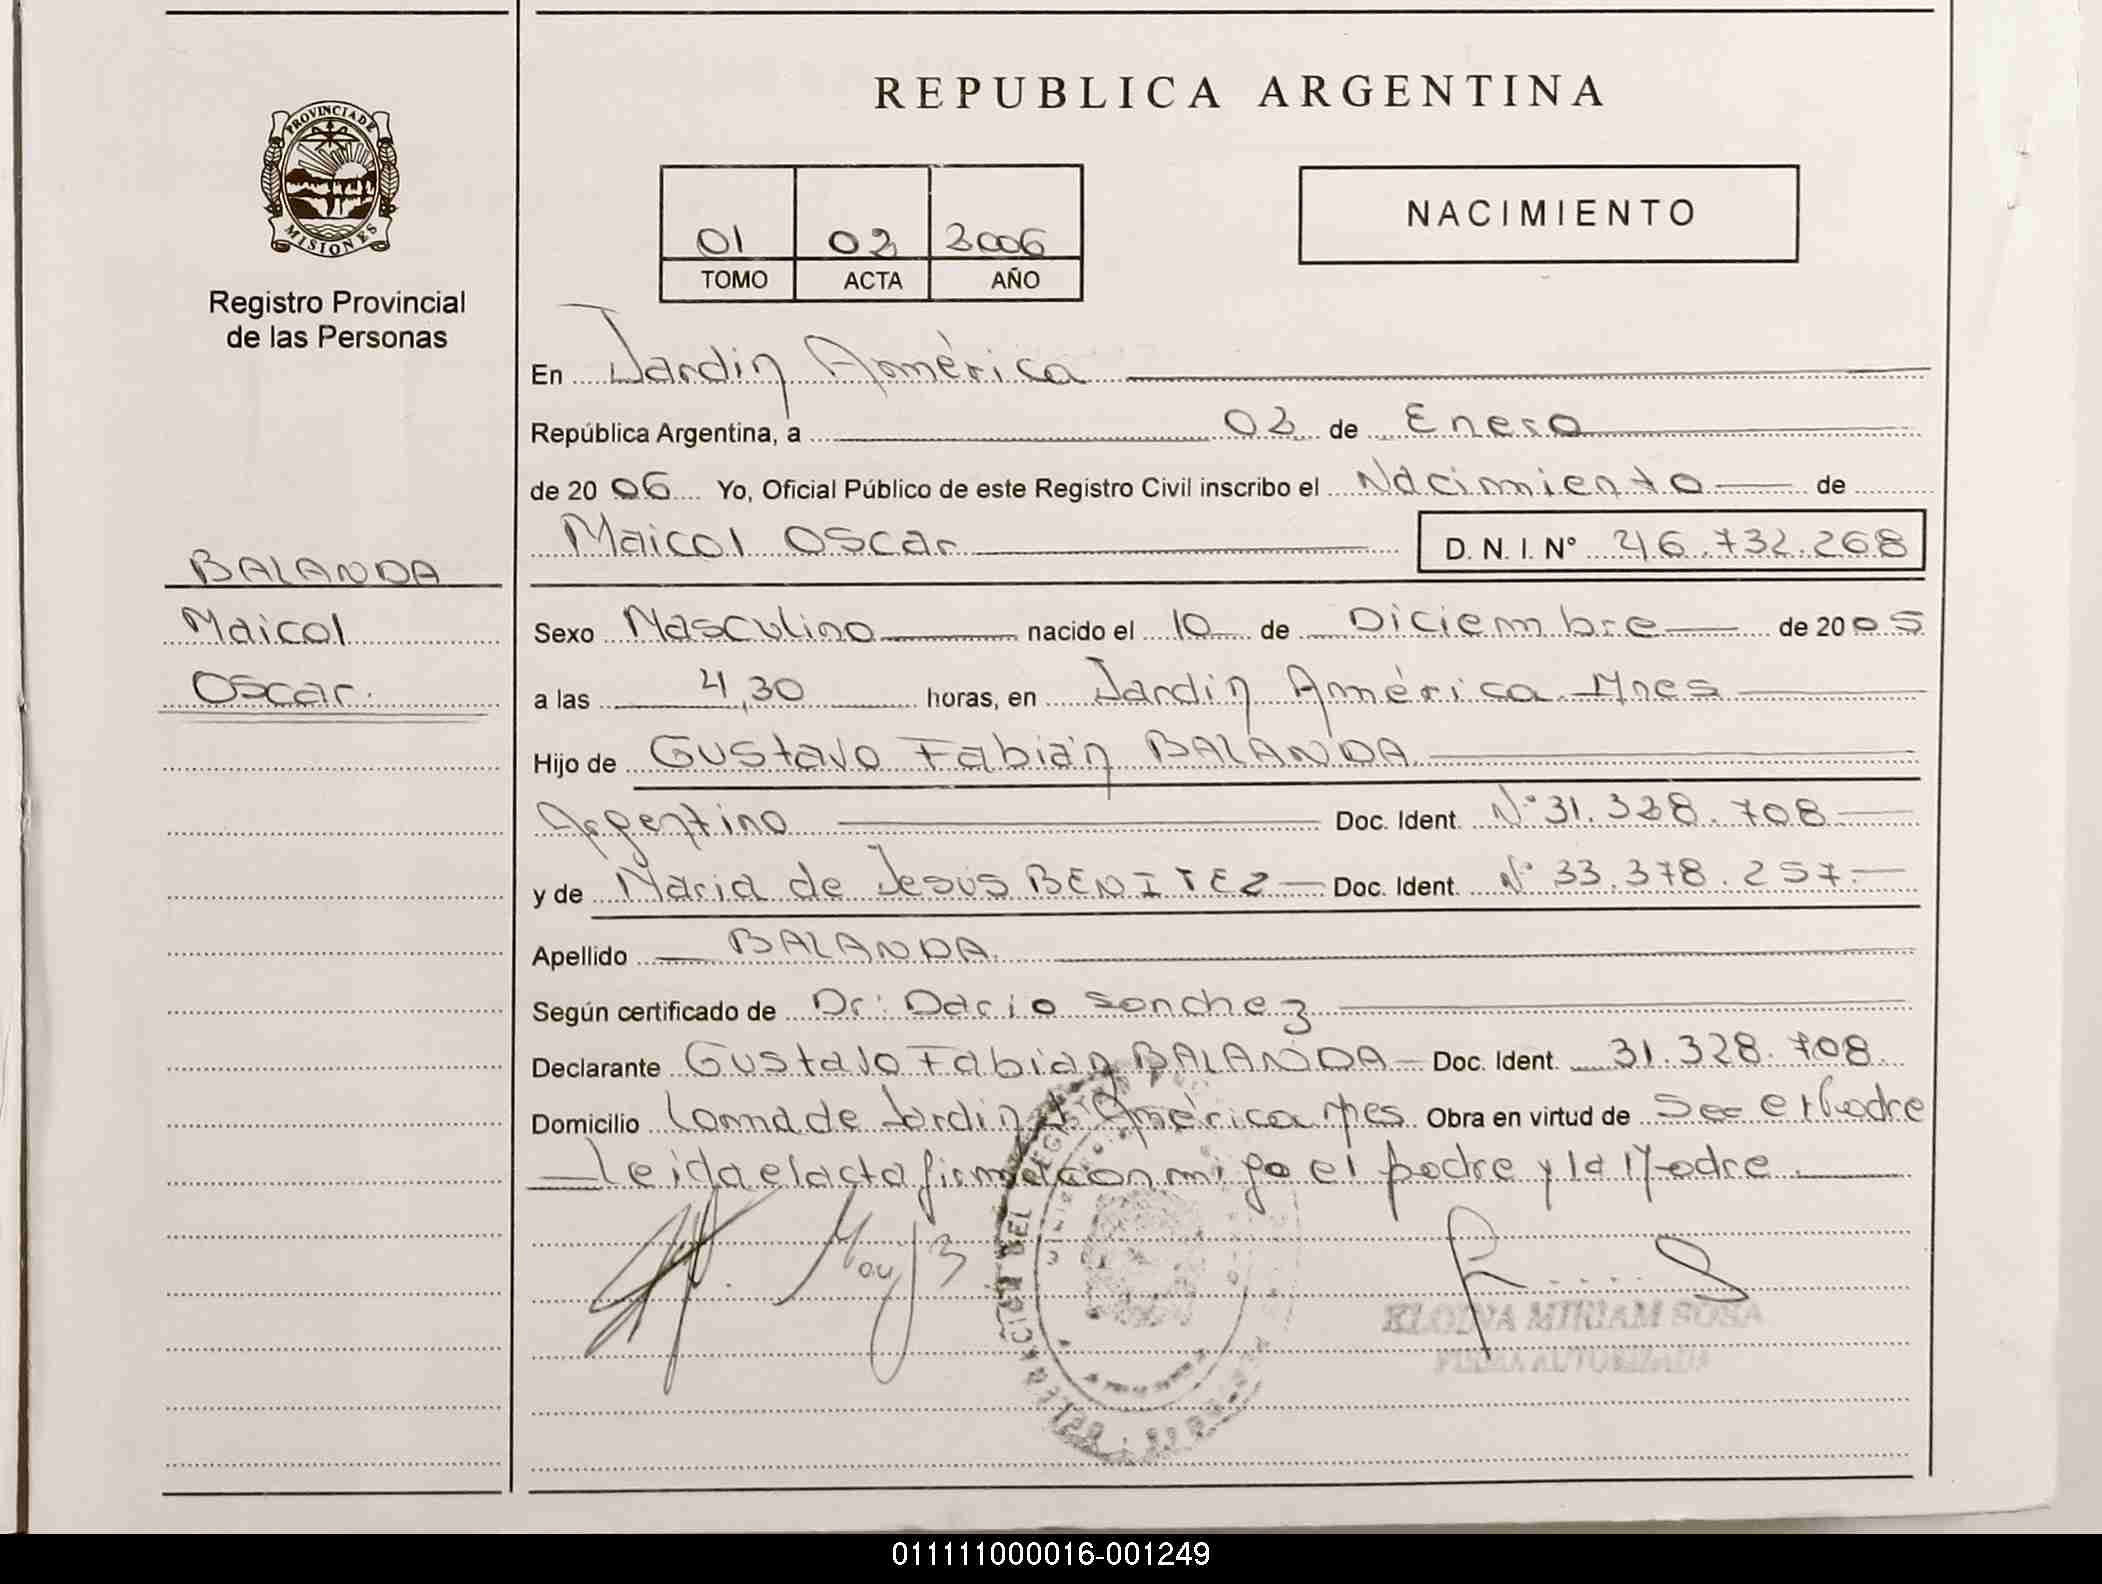 REPUBLICA ARGENTINA
PROVINCIA DE
MISIONES
Registro Provincial
de las Personas
01 02 2006
TOMO ACTA AÑO
NACIMIENTO
En Jardín América
República Argentina, a 02 de Enero
de 20 06 Yo, Oficial Público de este Registro Civil inscribo el Nacimiento de
Maicol Oscar D. N. I. Nº 46.732.268
BALANDA
Maicol
Oscar.
Sexo Masculino nacido el 10 de Diciembre de 20 05
a las 4,30 horas, en Jardín América Mnes
Hijo de Gustavo Fabián BALANDA
Argentino Doc. Ident. Nº 31.328.708
y de Maria de Jesús BENITEZ Doc. Ident. Nº 33.378.257.
Apellido BALANDA.
Según certificado de Dr: Dario Sanchez
Declarante Gustavo Fabian BALANDA Doc. Ident. 31.328.708
Domicilio Loma de Jardín América Mnes Obra en virtud de Ser el Padre
Leida el acta firma conmigo el padre y la Madre.
ELODIA MIRIAM SOSA
FIRMA AUTORIZADA
011111000016-001249